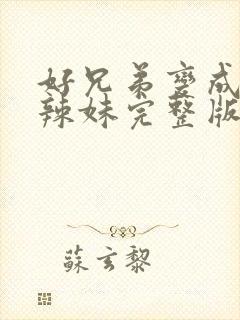 好兄弟变成
辣妹完整版
苏玄黎